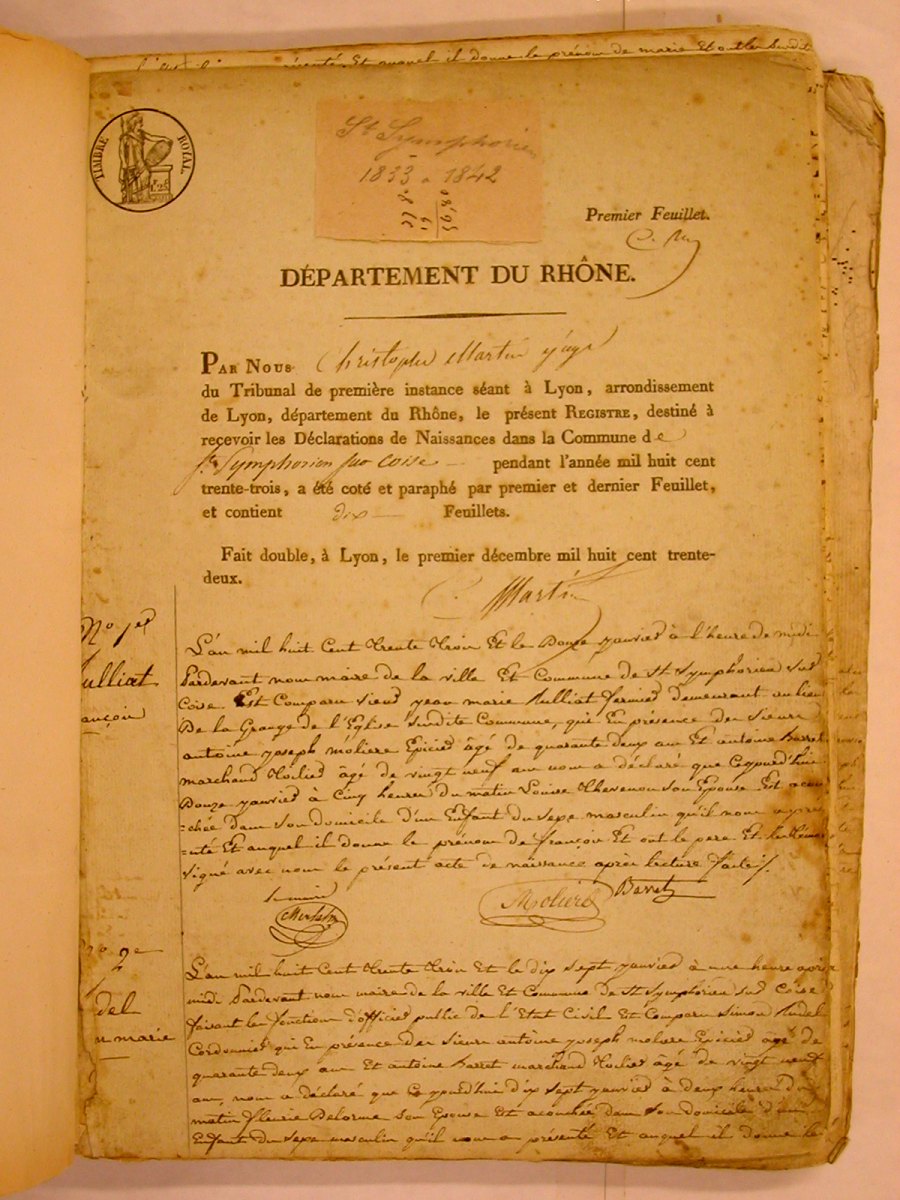 présenté. Et auquel il donne le prénom de marie Et outre Susdit
TIMBRE ROYAL.
St Symphorien
1833 a 1842
Premier Feuillet.
DÉPARTEMENT DU RHÔNE.
PAR NOUS Christophe Martin juge
du Tribunal de première instance séant à Lyon, arrondissement
de Lyon, département du Rhône, le présent REGISTRE, destiné à
recevoir les Déclarations de Naissances dans la Commune de
St Symphorien sur Coise pendant l'année mil huit cent
trente-trois, a été coté et paraphé par premier et dernier Feuillet,
et contient dix Feuillets.
Fait double, à Lyon, le premier décembre mil huit cent trente-
deux.
C. Martin
No 1er
ulliat
ançois
L'an mil huit Cent Trente Trois Et le Douze janvier à l'heure de midi
Pardevant nous maire de la ville Et Commune de St Symphorien sur
Coise Est Comparu sieur jean marie Rulliat fermier demeurant au lieu
De la Grange de l'Eglise Susdite Commune, qui En présence des sieurs
antoine joseph moliere Epicier âgé de quarante deux ans Et antoine Barret
marchand Toilier âgé de vingt neuf ans nous a déclaré que Cejourd'hui
Douze janvier à Cinq heures Du matin Louise Thevenon son Epouse Est accou
=chée Dans Son domicile D'un Enfant du Sexe masculin qu'il nous a pres
=enté Et auquel il donne le prénom de françois Et ont le pere Et les témoins
Signé avec nous le présent acte de naissance après lecture faite.
Le maire
Moliere Barret
No 2e
del
n marie
L'an mil huit Cent Trente Trois Et le dix sept janvier à une heure après
midi Pardevant nous maire de la ville Et Commune de St Symphorien sur Coise
faisant les fonctions d'officier public de l'Etat Civil Est Comparu Simon Rudel
Cordonnier qui En présence Des Sieurs antoine joseph moliere Epicier âgé de
quarante deux ans Et antoine Barret marchand Toilier âgé de vingt neuf
ans, nous a déclaré que Cejourd'hui dix sept janvier à deux heures du
matin fleurie Delorme son Epouse Est accouchée dans son domicile d'un
Enfant Du Sexe masculin qu'il nous a présenté Et auquel il donne le